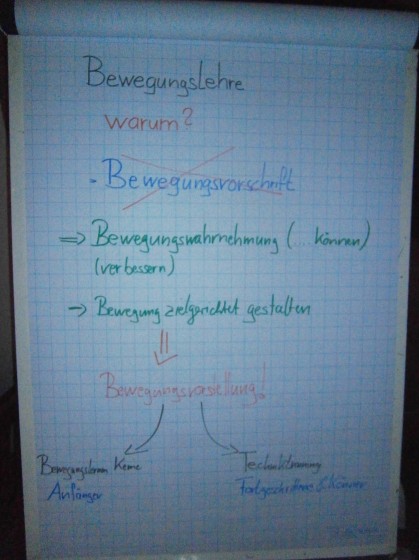 Bewegungslehre
warum?
- Bewegungsvorschrift
=> Bewegungswahrnehmung (....können)
(verbessern)
-> Bewegung zielgerichtet gestalten
Bewegungsvorstellung!
Techniktraining
Anfänger
Fortgeschrittene & Könner